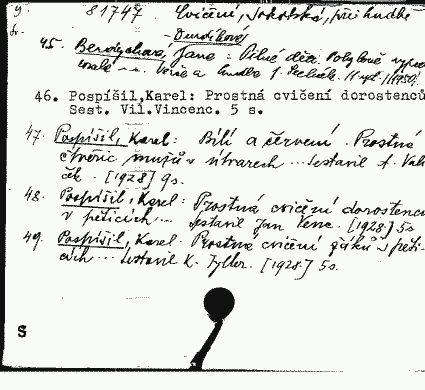 81747. Cvičení, Sokolská, při hudbě
45. Berdychova, Jana: Pilné děti. Pohybově
46. Pospíšil,Karel: Prostná cvičení dorostenců
Sest. Vil.Vincenc. 5 s.
47. Pospíšil, Karel: Bílí a červení. Prostná
čtveřic mužů v útvarech ... Sestavil A. Val-
ček. [1928] 9s.
48. Pospíšil, Karel: Prostná cvičení dorostenců
v pěticích ... Sestavil Jan [1928.] 5s
49. Pospíšil, Karel: Prostná cvičení žáků v pěti-
cích ... Sestavil K. [1928.] 5s.
S